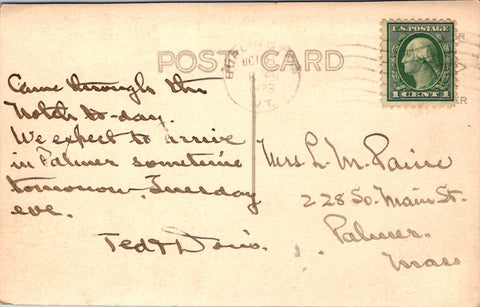 POST CARD
U.S. POSTAGE
1 CENT 1
OCT
VT.
Came through the
Notch to-day.
We expect to arrive
in Palmer sometime
tomorrow, Tuesday
eve.
Ted &
Mrs. L. M. Paine
228 So. Main St.
Palmer.
Mass